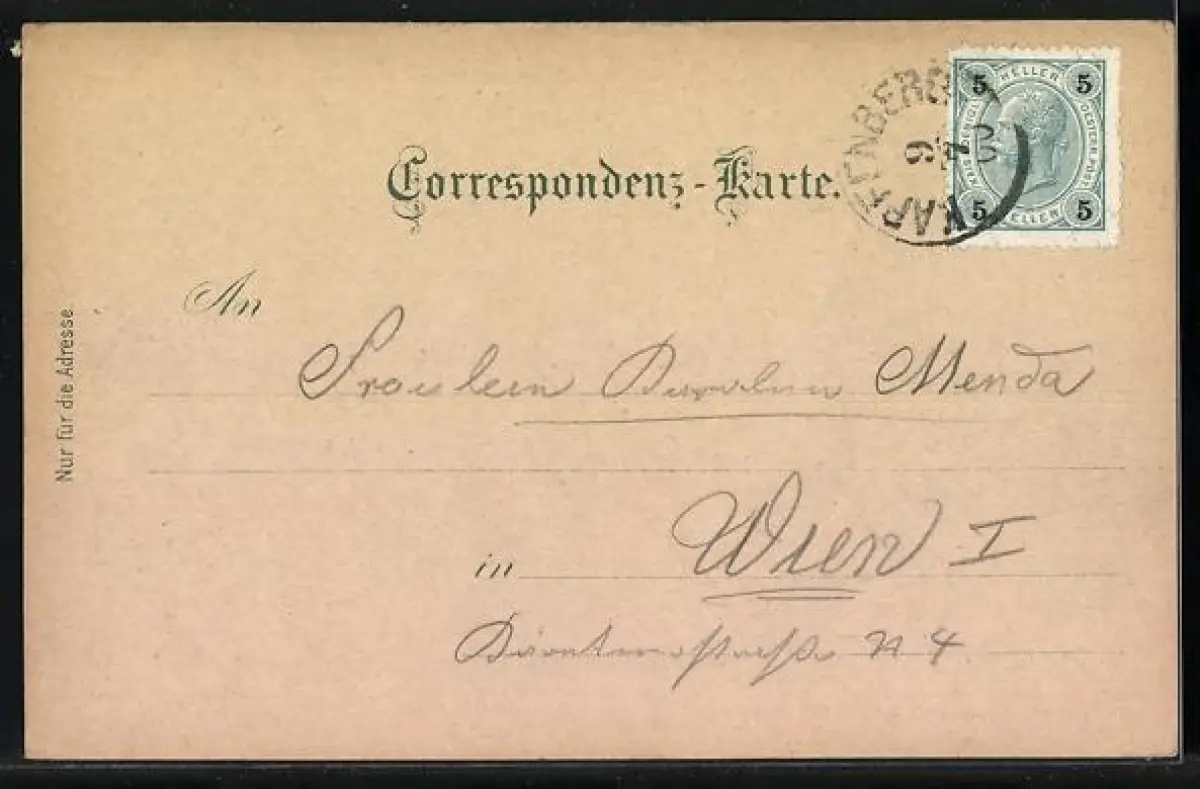 Correspondenz-Karte.
KAPFENBERG
6 4
5 HELLER 5
OESTERR. POST
5 HELLER 5
Nur für die Adresse
An
Fräulein Menda
in Wien I
N 4